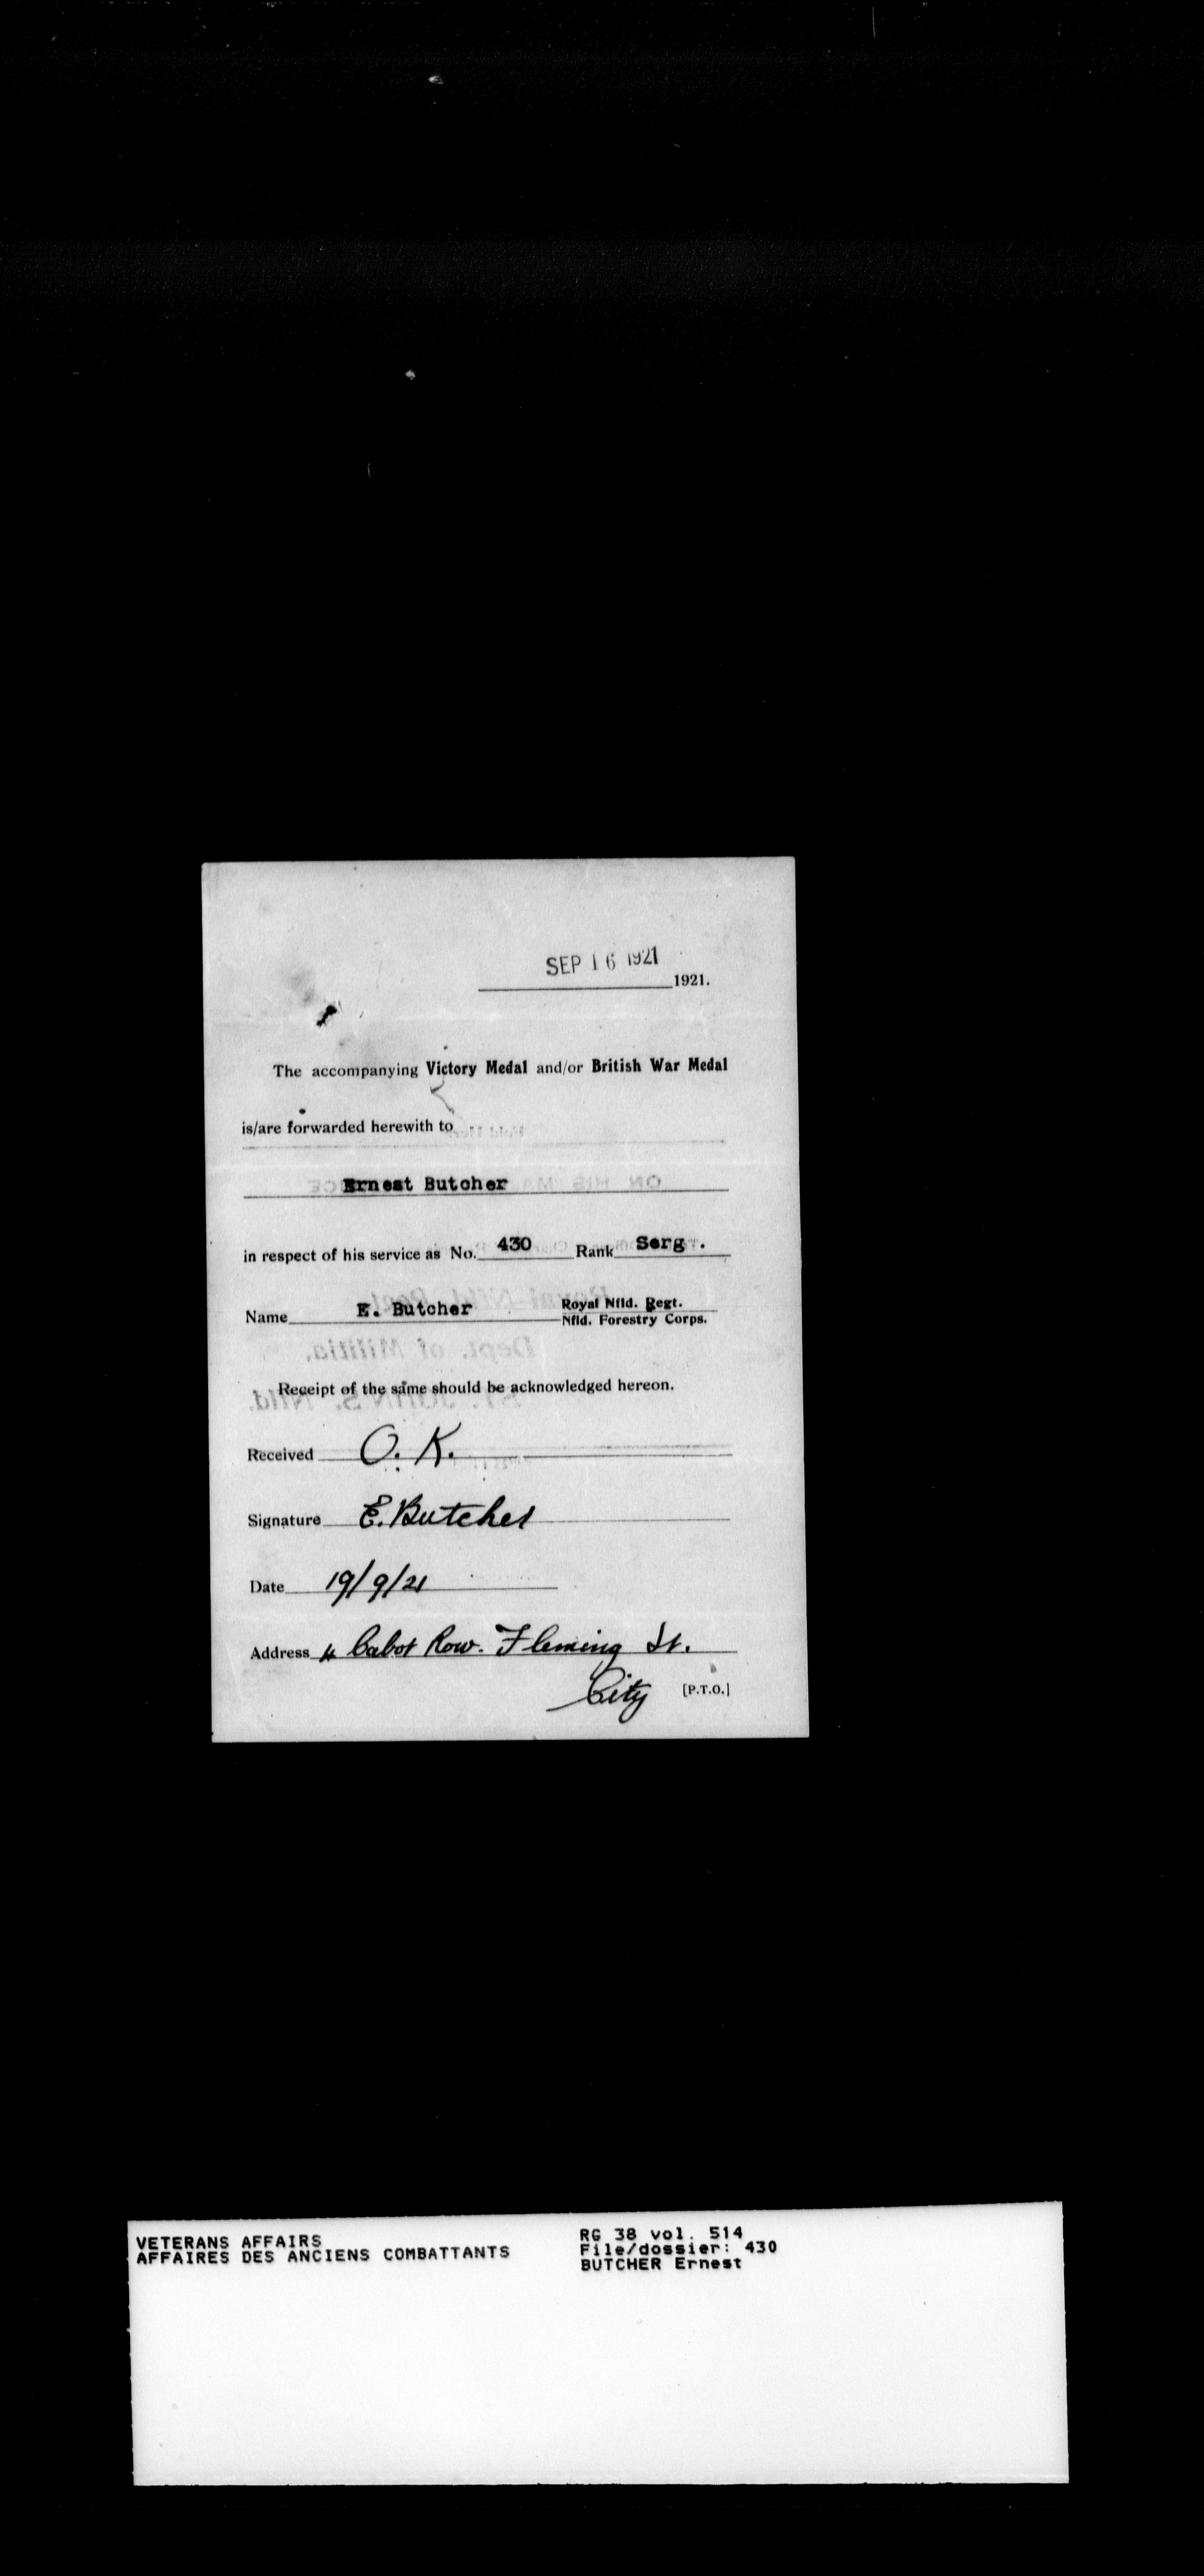 SEP 16 1921
1921.
The accompanying Victory Medal and/or British War Medal
is/are forwarded herewith to
Ernest Butcher
in respect of his service as No. 430 Rank Serg .
Name E. Butcher Royal Nfld. Regt.
Nfld. Forestry Corps.
Receipt of the same should be acknowledged hereon.
Received O. K.
Signature E. Butcher
Date 19/9/21
Address 4 Cabot Row. Fleming St.
City [P.T.O.]
VETERANS AFFAIRS
AFFAIRES DES ANCIENS COMBATTANTS
RG 38 vol. 514
File/dossier: 430
BUTCHER Ernest